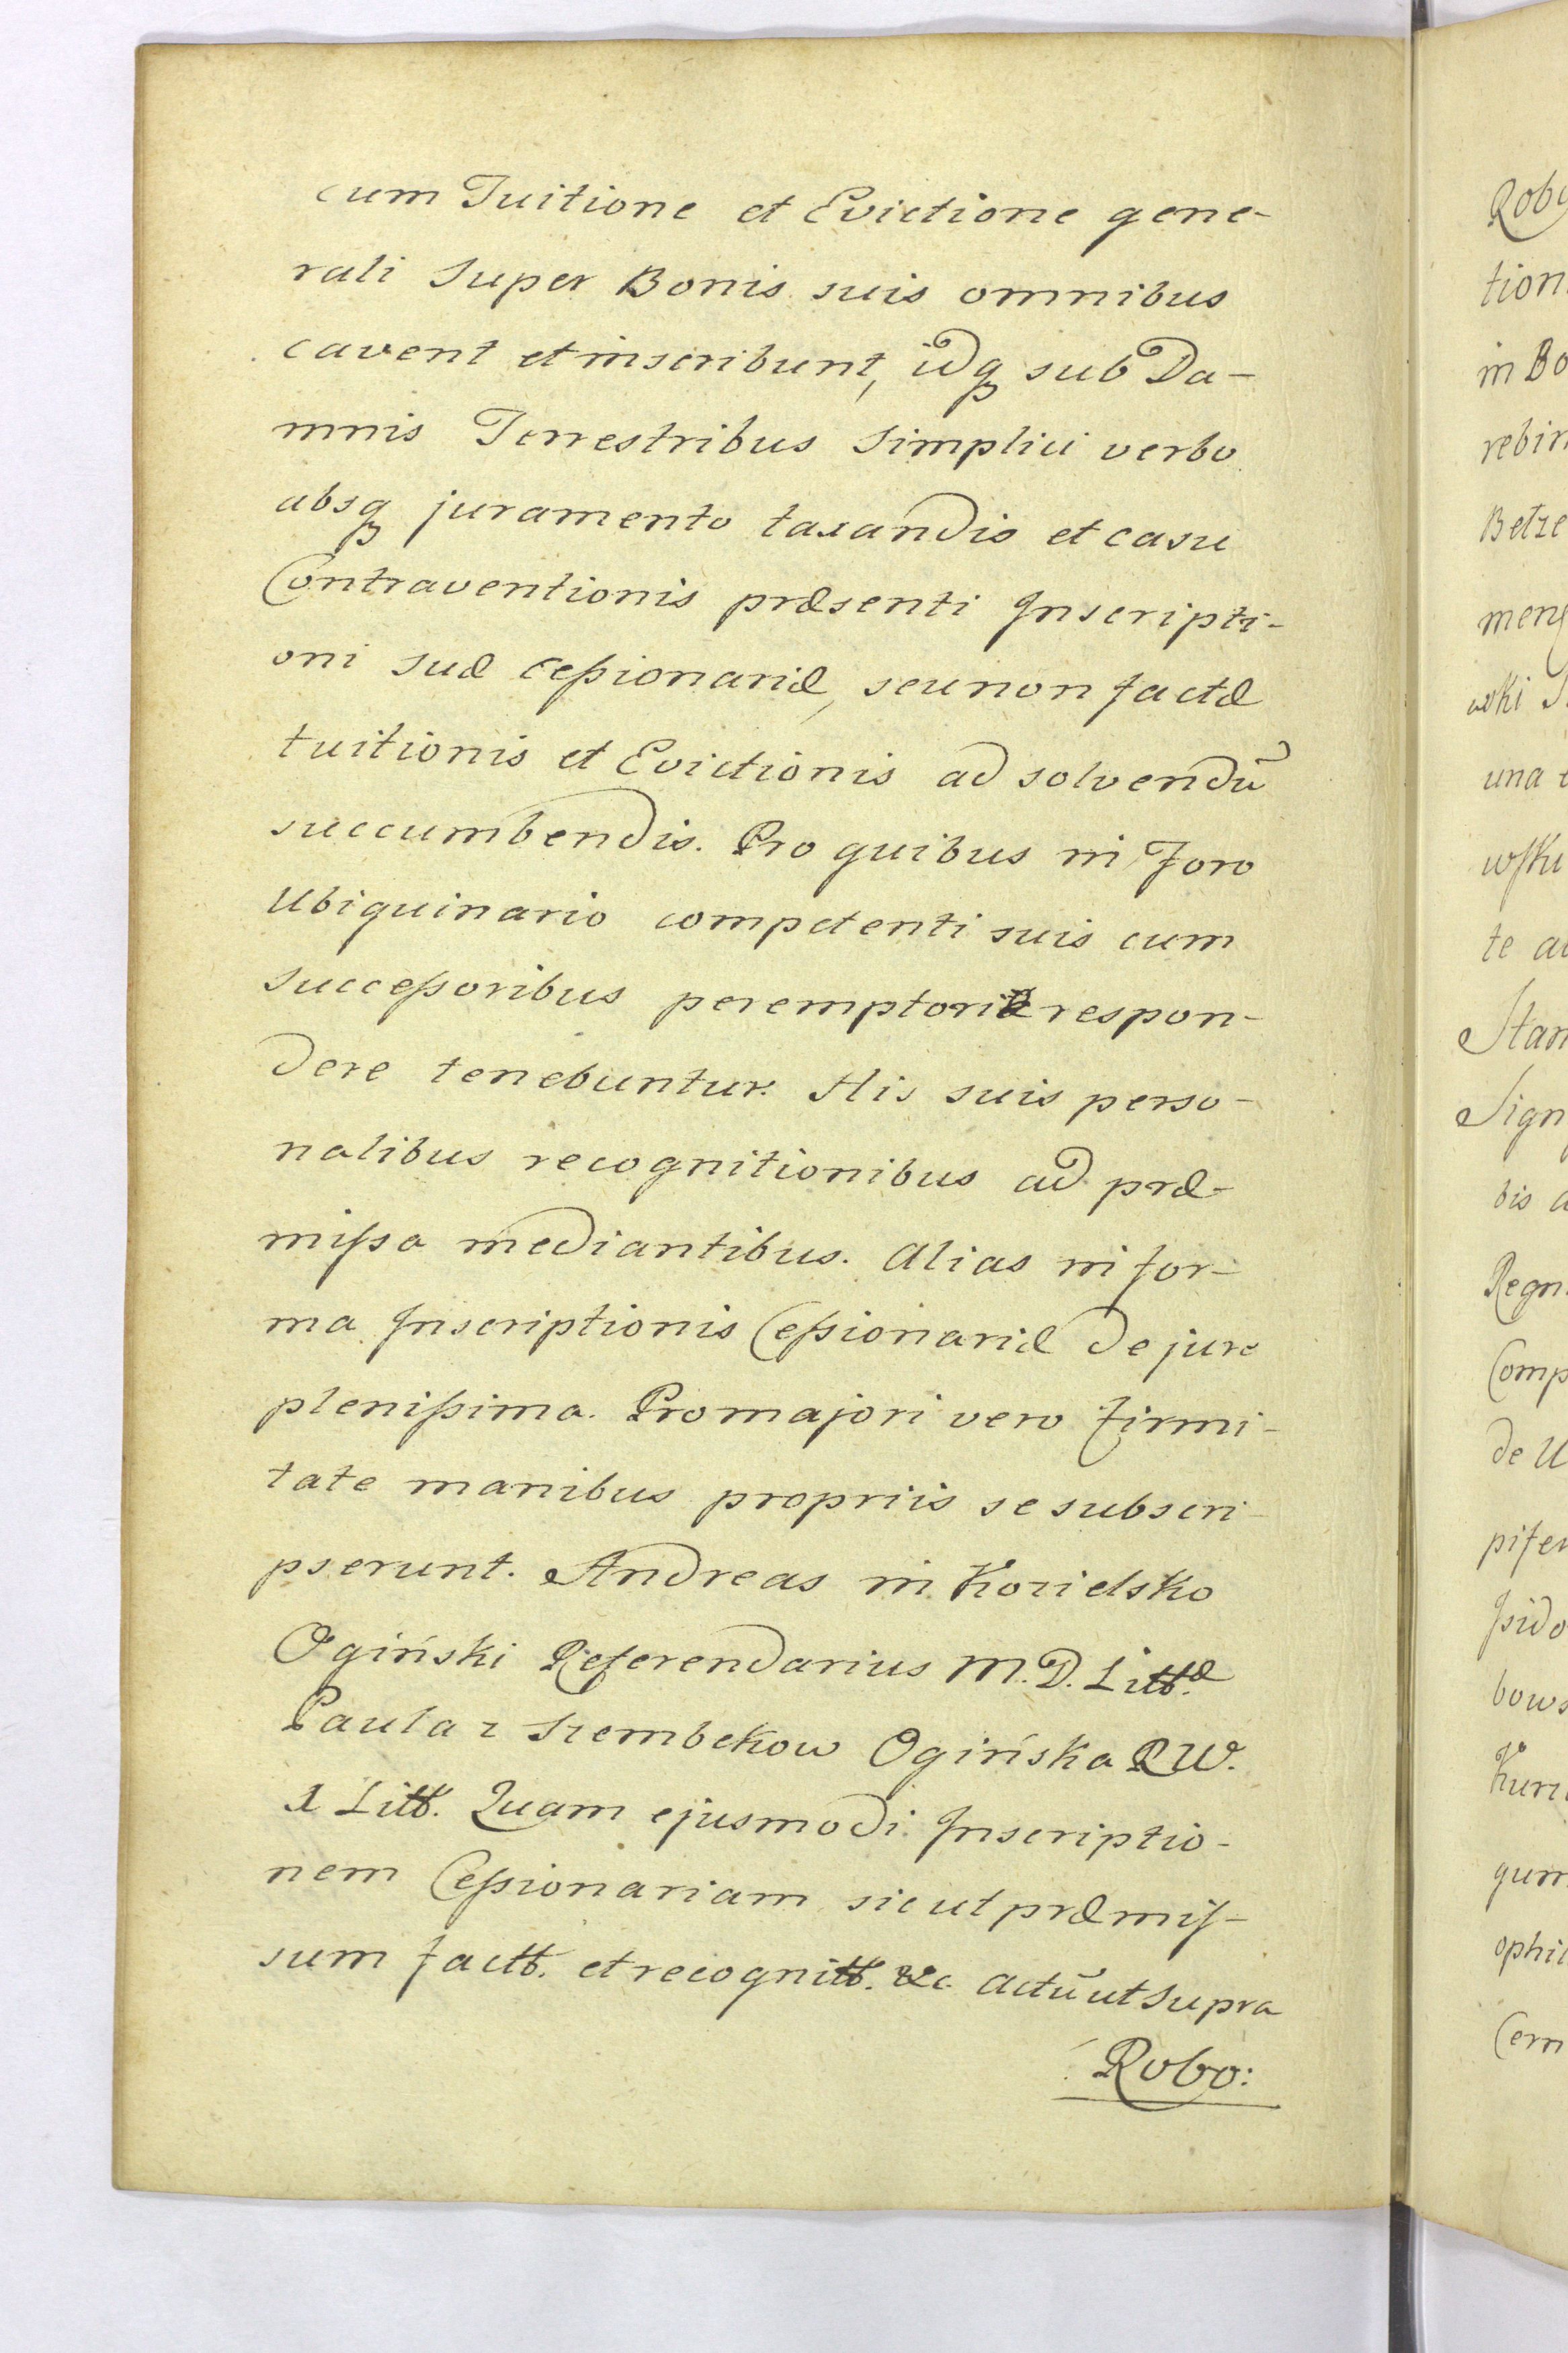 cum Tuitione et Evictione gene-
rali super Bonis suis omnibus
cavent et inscribunt, idq sub Da-
mnis Terrestribus simplici verbo
absq juramento taxandis et casu
Contraventionis præsenti Inscripti-
oni suæ Ceßionariæ, seu non factæ
tuitionis et Evictionis ad solvendū
succumbendis. Pro quibus in Foro
Ubiquinario competenti suis cum
Succeßoribus peremptorie respon-
dere tenebuntur. His suis perso-
nalibus recognitionibus ad præ-
mißa mediantibus. Alias in for-
ma Inscriptionis Ceßionariæ de jure
plenißima. Pro majori vero firmi-
tate manibus propriis se subscri-
pserunt. Andreas in Kozielsko
Ogiński Referendarius M. D. Littæ
Paula z Szembekow Ogińska R W.
X Litt. Quam ejusmodi Inscriptio-
nem Ceßionariam sicut præmis-
sum factt. et recognitt. &c. actū ut supra
Robo:
Roby
tion
in Bo
rebin
Betze
wski
una
te
Stan
Sign
bis
Regn.
Comp
de U
bows
ophil
Cern